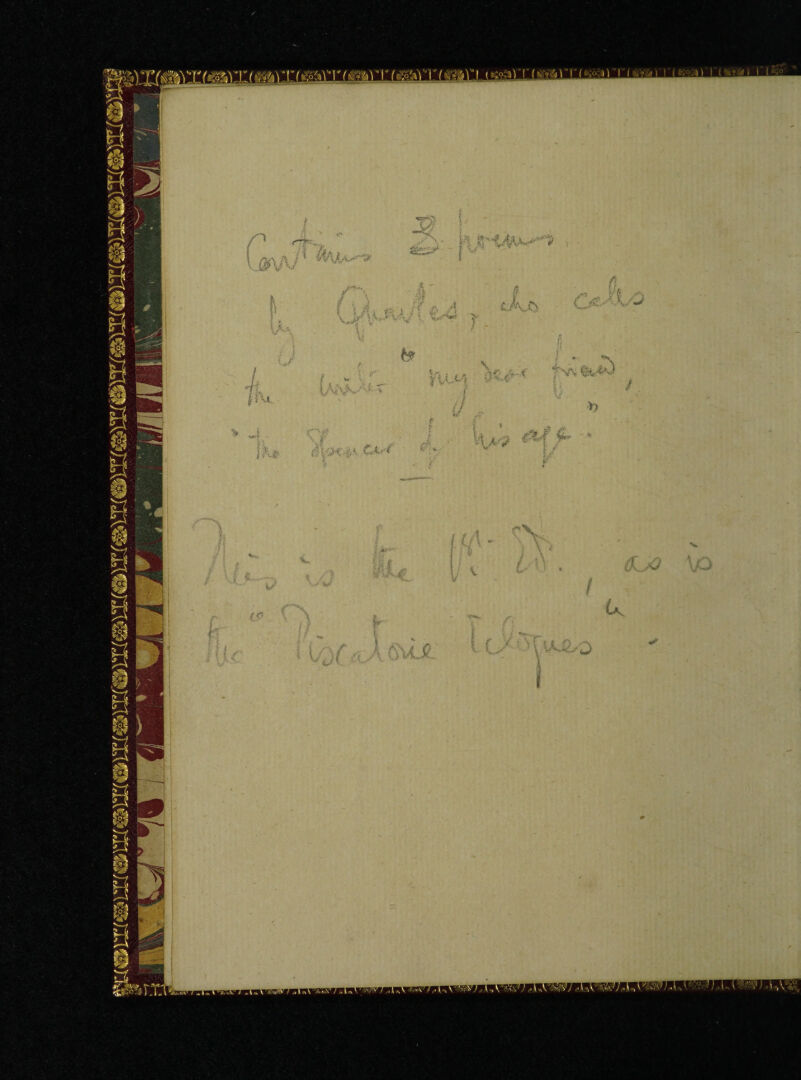 Contains 3 poems
by Quarles, who calls
the writer "my dear friend,
"the Spencer of his age."
This is the 1st. Ed., as is
the "Piscatorie Eclogues".